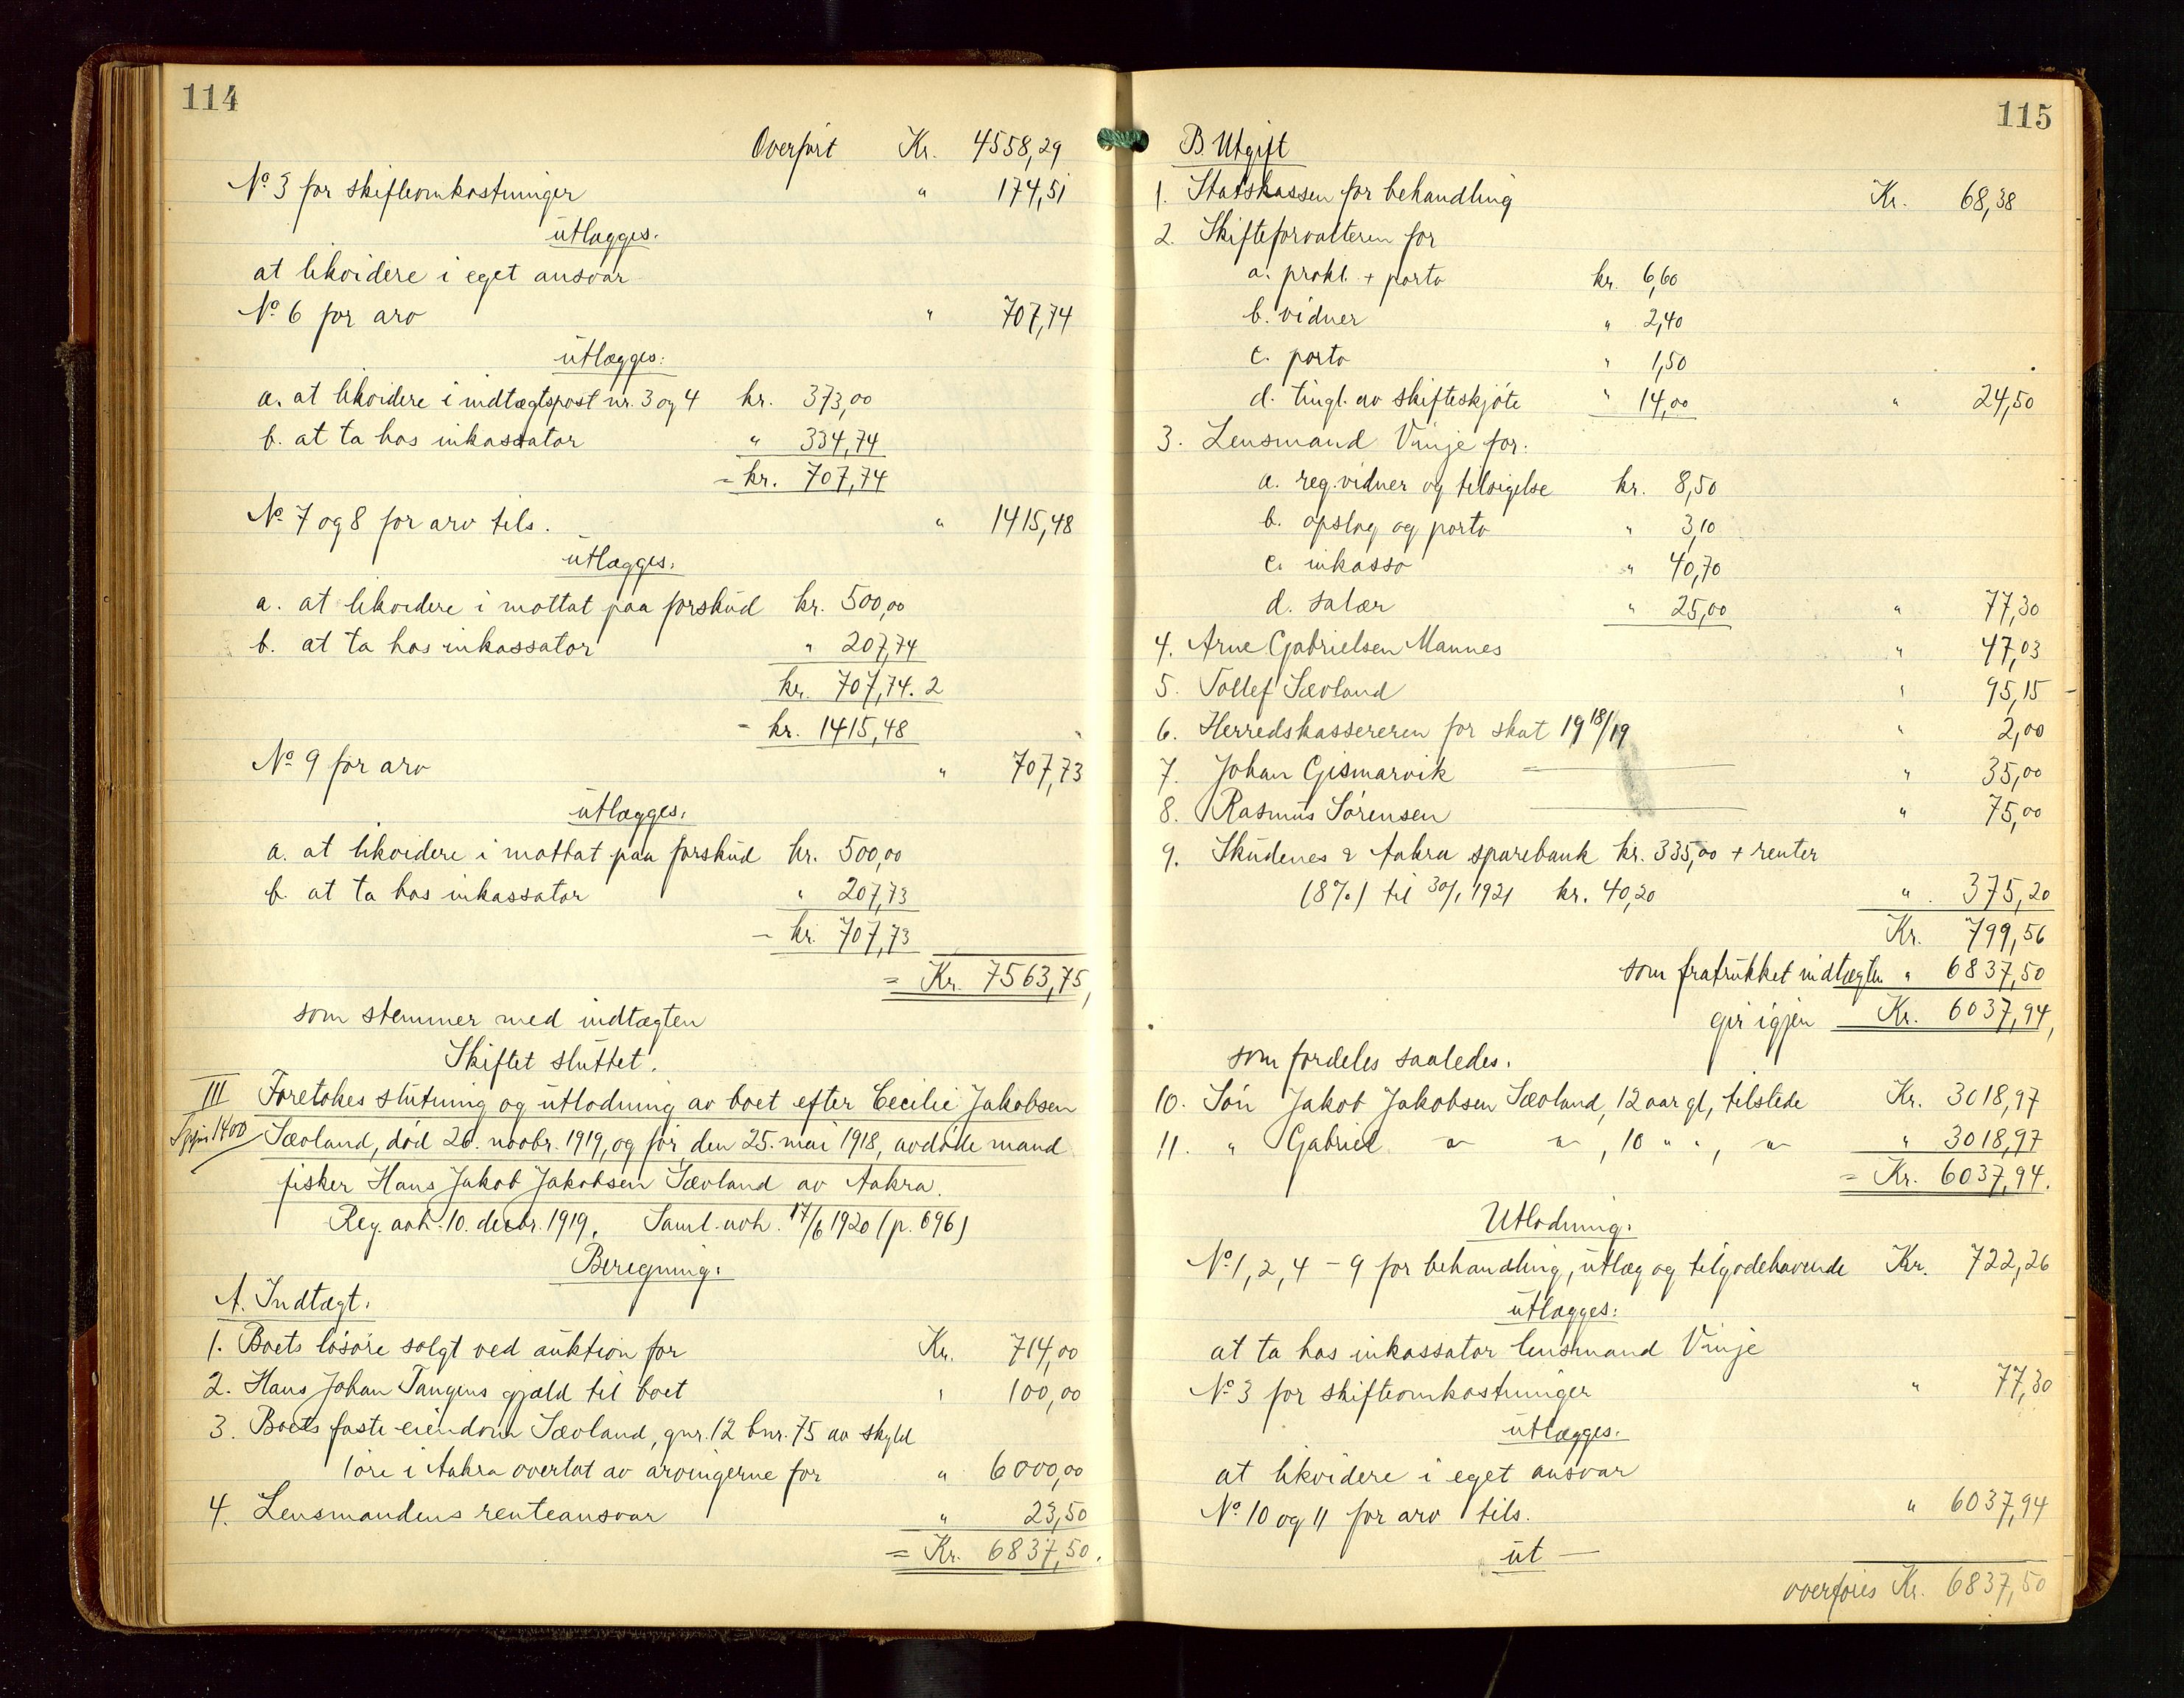 114
Overført Kr. 4558,29
No 3 for skifteomkostninger " 174,51
utlægges.
at likvidere i eget ansvar
No 6 for arv " 707,74
utlægges:
a. at likvidere i indtægtspost nr. 3 og 4 kr. 373,00
b. at ta hos inkassator " 334,74
= kr. 707,74
No 7 og 8 for arv tils. " 1415,48
utlægges:
a. at likvidere i mottat paa forskud kr. 500,00
b. at ta hos inkassator " 207,74
kr. 707,74. 2
= kr. 1415,48
No 9 for arv " 707,73
utlægges:
a. at likvidere i mottat paa forskud kr. 500,00
b. at ta hos inkassator " 207,73
= kr. 707,73
= Kr. 7563,75,
som stemmer med indtægten
Skiftet sluttet.
III Foretokes slutning og utlodning av boet efter Cecilie Jakobsen
1400 Sævland, død 26. novbr. 1919, og før, den 25. mai 1918, avdøde mand
fisker Hans Jakob Jakobsen Sævland av Aakra.
Reg. avh. 10. decbr. 1919. Saml. avh. 17/6 1920 (p. 696)
Beregning:
A. Indtægt.
1. Boets løsøre solgt ved auktion for Kr. 714,00
2. Hans Johan Tangens gjæld til boet " 100,00
3. Boets faste eiendom Sævland, gnr. 12 bnr. 75 av skyld
1 øre i Aakra overtat av arvingerne for " 6000,00
4. Lensmandens renteansvar " 23,50
= Kr. 6837,50.
115
B. Utgift
1. Statskassen for behandling Kr. 68,38
2. Skifteforvalteren for
a. prokl. + porto kr. 6,60
b. vidner " 2,40
c. porto " 1,50
d. tingl. av skifteskjøte " 14,00 " 24,50
3. Lensmand Vinje for:
a. reg. vidner og tilsigelse kr. 8,50
b. opslag og porto " 3,10
c. inkasso " 40,70
d. salær " 25,00 " 77,30
4. Arne Gabrielsen Mannes " 47,03
5. Tollef Sævland " 95,15
6. Herredskassereren for skat 1918/19 " 2,00
7. Johan Gismarvik " 35,00
8. Rasmus Sørensen " 75,00
9. Skudenes & Aakra sparebank kr. 335,00 + renter
(8%) til 30/1 1921 kr. 40,20 " 375,20
Kr. 799,56
som fratrukket indtægten " 6837,50
gir igjen Kr. 6037,94,
som fordeles saaledes.
10. Søn Jakob Jakobsen Sævland, 12 aar gl, tilstede Kr. 3018,97
11. " Gabriel " " , 10 " " , " " 3018,97
= Kr. 6037,94.
Utlodning.
No 1, 2, 4 - 9 for behandling, utlæg og tilgodehavende Kr. 722,26
utlægges:
at ta hos inkassator lensmand Vinje
No 3 for skifteomkostninger " 77,30
utlægges.
at likvidere i eget ansvar
No 10 og 11 for arv tils. " 6037,94
ut —
overføres Kr. 6837,50